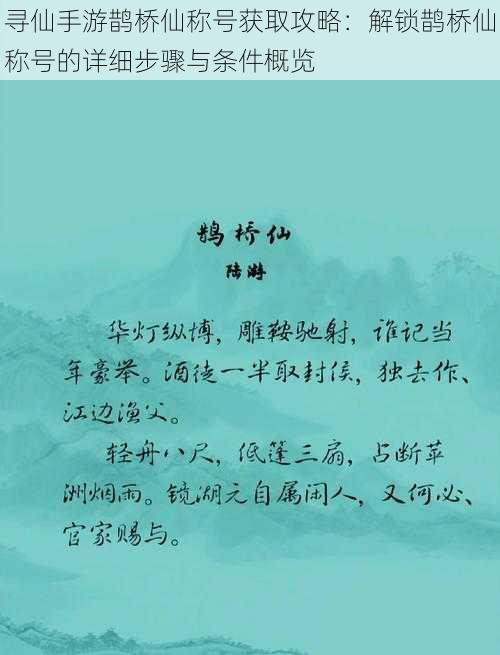 寻仙手游鹊桥仙称号获取攻略：解锁鹊桥仙
称号的详细步骤与条件概览
鹊桥仙
陆游
华灯纵博，雕鞍驰射，谁记当
年豪举。酒徒一半取封侯，独去作、
江边渔父。
轻舟八尺，低篷三扇，占断苹
洲烟雨。镜湖元自属闲人，又何必、
官家赐与。